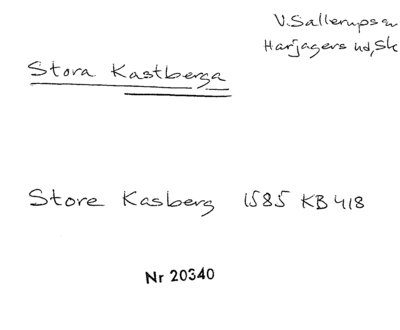 V. Sallerups sn
Harjagers hd, Sk
Stora Kastberga
Store Kasberg 1585 KB 418
Nr 20340